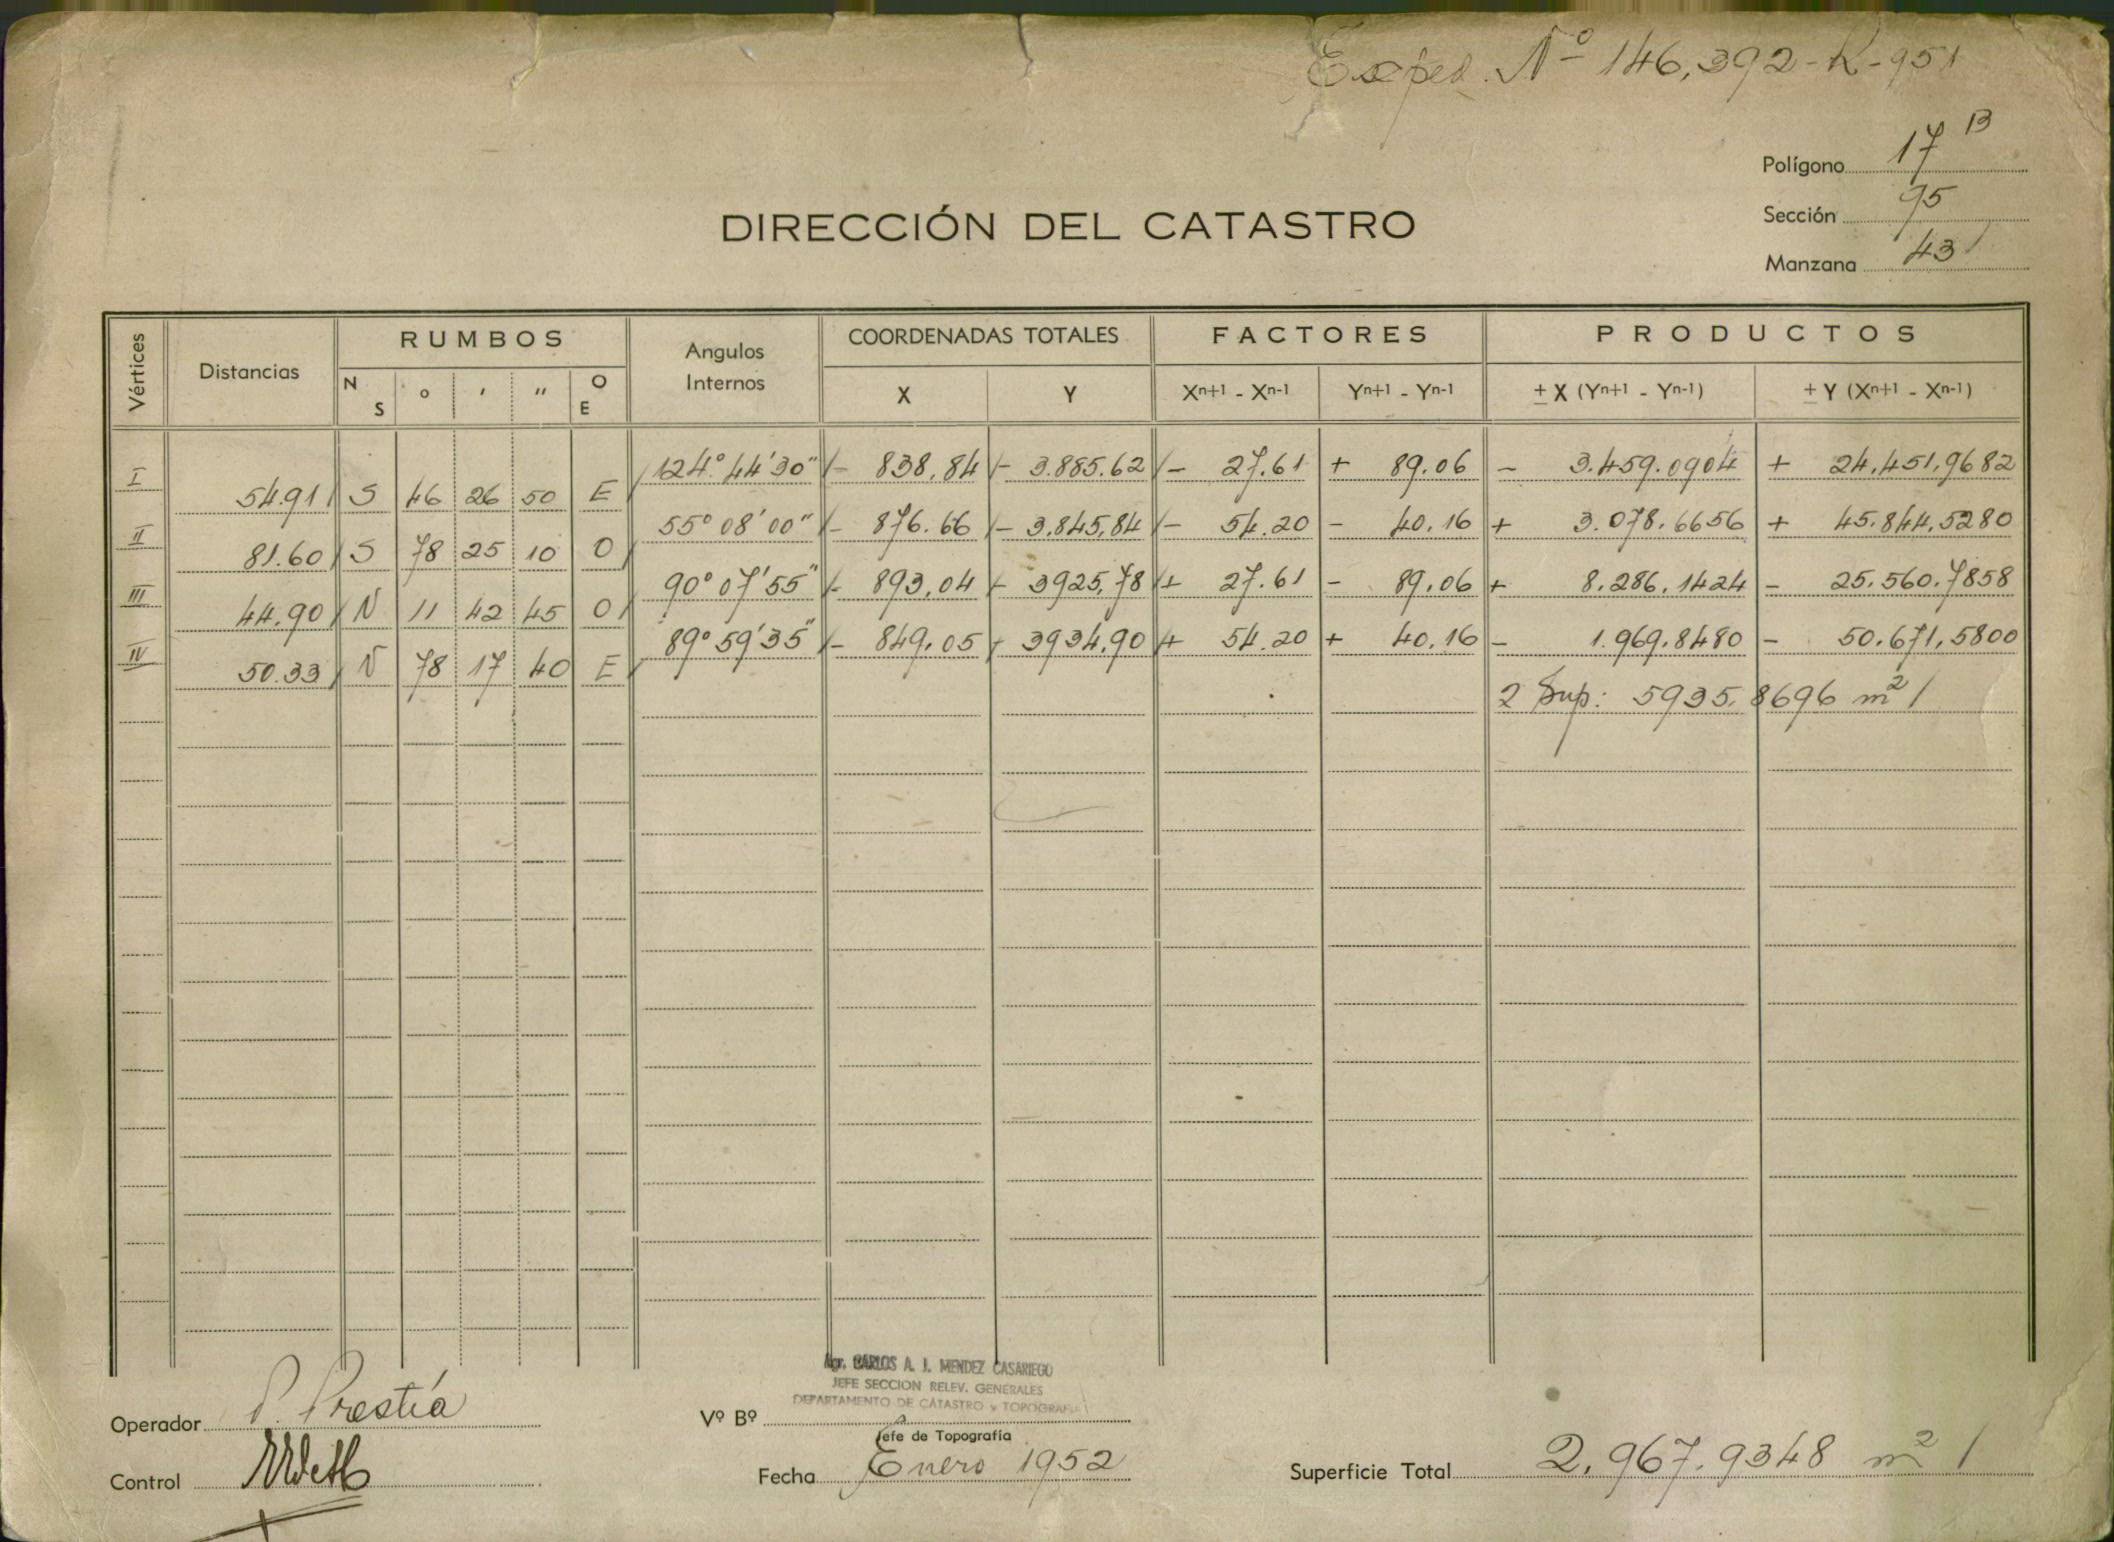 Exped. Nº 146,392-R-951
Polígono 17 B
Sección 95
Manzana 43 /
DIRECCIÓN DEL CATASTRO
Vértices Distancias RUMBOS Angulos Internos COORDENADAS TOTALES FACTORES PRODUCTOS
N S ° ' " O E X Y Xn+1 - Xn-1 Yn+1 - Yn-1 ± X (Yn+1 - Yn-1) ± Y (Xn+1 - Xn-1)
I 124.° 44' 30" /- 838,84 /- 3.885.62 /- 27.61 + 89.06 - 3.459.0904 + 24.451,9682
54.91 / S 46 26 50 E /
II 55° 08' 00" /- 876.66 /- 3.845,84 /- 54.20 - 40.16 + 3.078.6656 + 45.844,5280
81.60 / S 78 25 10 O /
III 90° 07' 55" /- 893,04 /- 3925,78 /+ 27.61 - 89.06 + 8.286.1424 - 25.560.7858
44.90 / N 11 42 45 O /
IV 89° 59' 35" /- 849.05 /- 3934,90 /+ 54.20 + 40.16 - 1.969.8480 - 50.671,5800
50.33 / N 78 17 40 E /
2 Sup: 5935.8696 m2 /
Agr. CARLOS A. J. MENDEZ CASARIEGO
JEFE SECCION RELEV. GENERALES
DEPARTAMENTO DE CATASTRO y TOPOGRAFIA
Operador P. Prestía
Vº Bº
Jefe de Topografía
Control
Fecha Enero 1952
Superficie Total 2.967.9348 m2 /